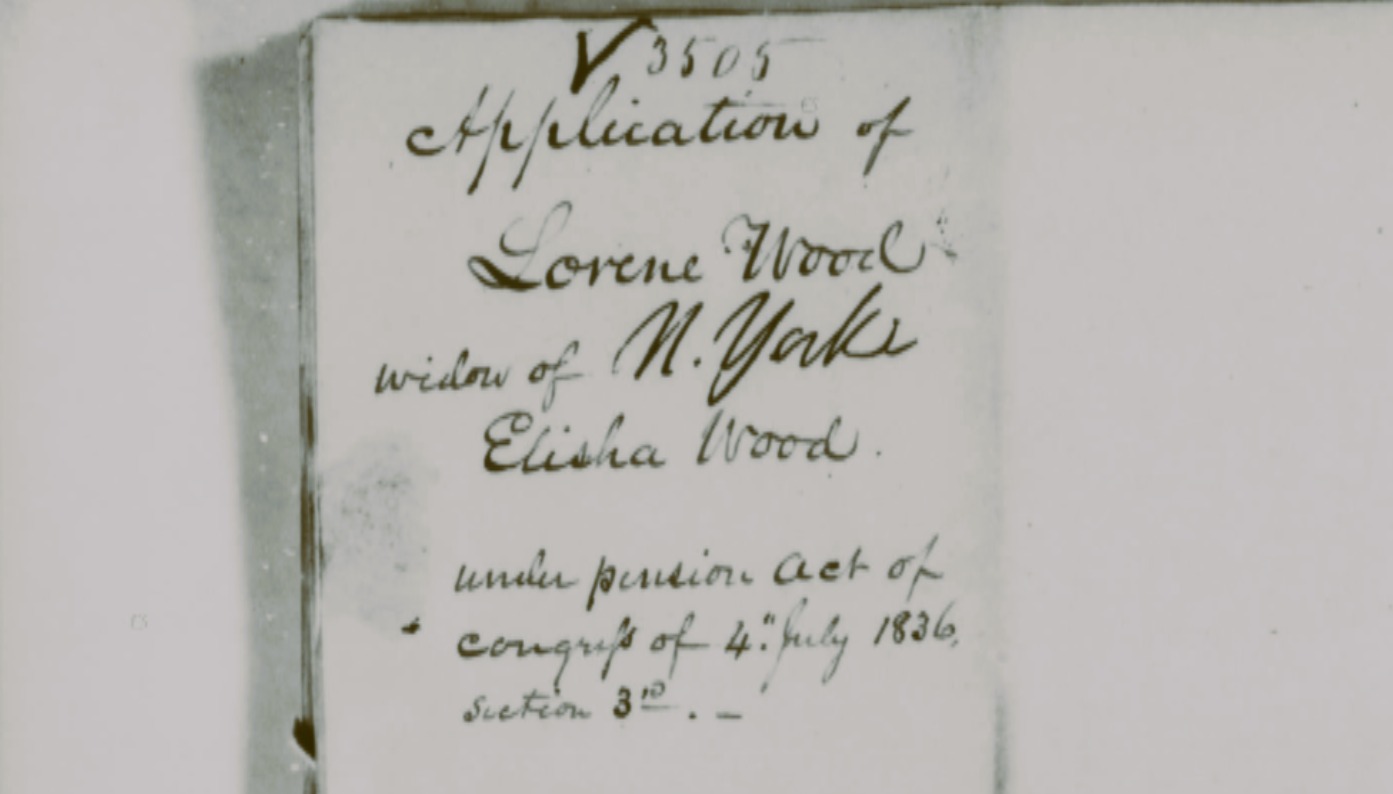 V 3505
Application of
Lorene Wood
N. York
widow of
Elisha Wood.
under pension act of
congreſs of 4." July 1836.
section 3rd. –